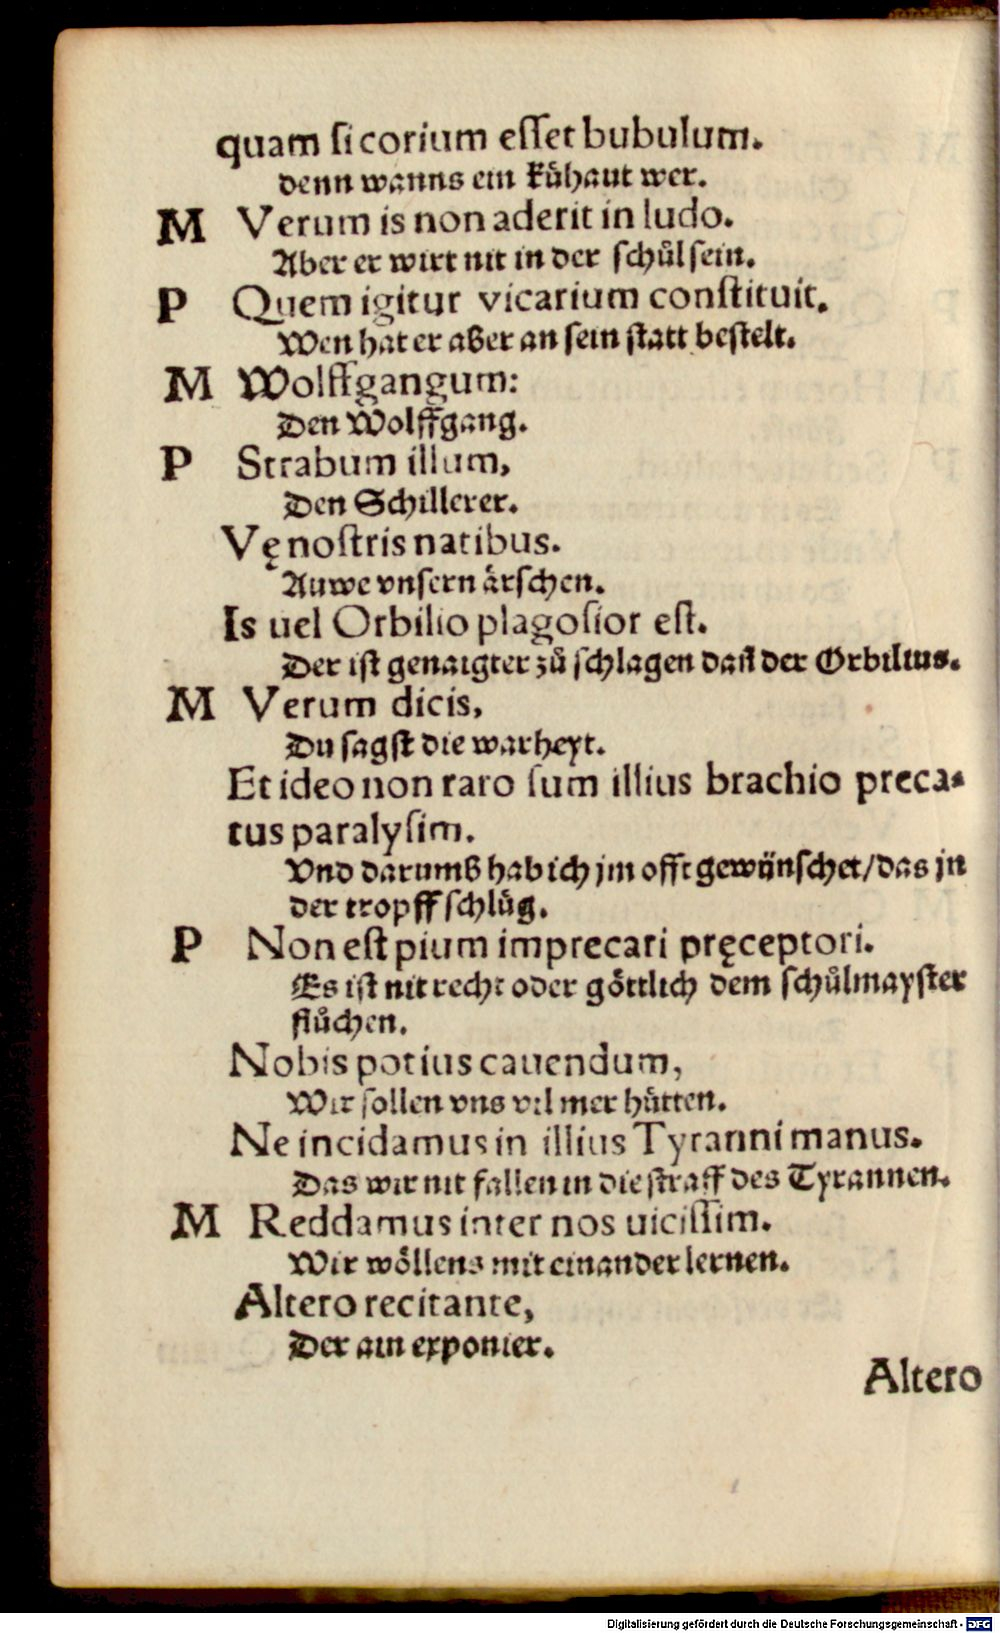 quam si corium esset bubulum.
denn wanns ein kůhaut wer.
M Verum is non aderit in ludo.
Aber er wirt nit in der schůl sein.
P Quem igitur vicarium constituit.
Wen hat er aber an sein statt bestelt.
M Wolffgangum:
Den Wolffgang.
P Strabum illum,
Den Schillerer.
Vę nostris natibus.
Auwe vnsern aͤrschen.
Is uel Orbilio plagosior est.
Der ist genaigter zů schlagen dañ der Orbilius.
M Verum dicis,
Du sagst die warheyt.
Et ideo non raro sum illius brachio preca-
tus paralysim.
Vnd darumb hab ich jm offt gewünschet/das jn
der tropff schlůg.
P Non est pium imprecari pręceptori.
Es ist nit recht oder goͤttlich dem schůlmayster
flůchen.
Nobis potius cauendum,
Wir sollen vns vil mer hůtten.
Ne incidamus in illius Tyranni manus.
Das wir nit fallen in die straff des Tyrannen.
M Reddamus inter nos uicissim.
Wir woͤllens mit einander lernen.
Altero recitante,
Der ain exponier.
Altero
Digitalisierung gefördert durch die Deutsche Forschungsgemeinschaft - DFG